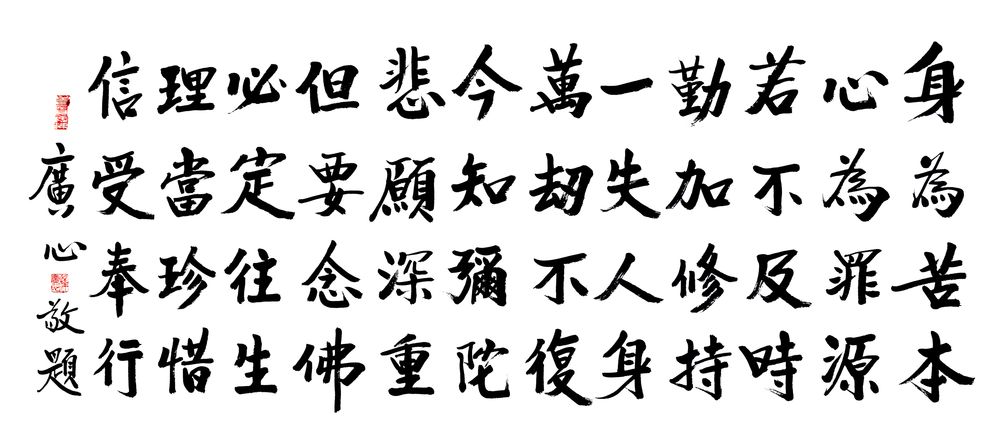 身為苦本
心為罪源
若不及時
勤加修持
一失人身
萬劫不復
今知彌陀
悲願深重
但要念佛
必定往生
理當珍惜
信受奉行
廣心敬題